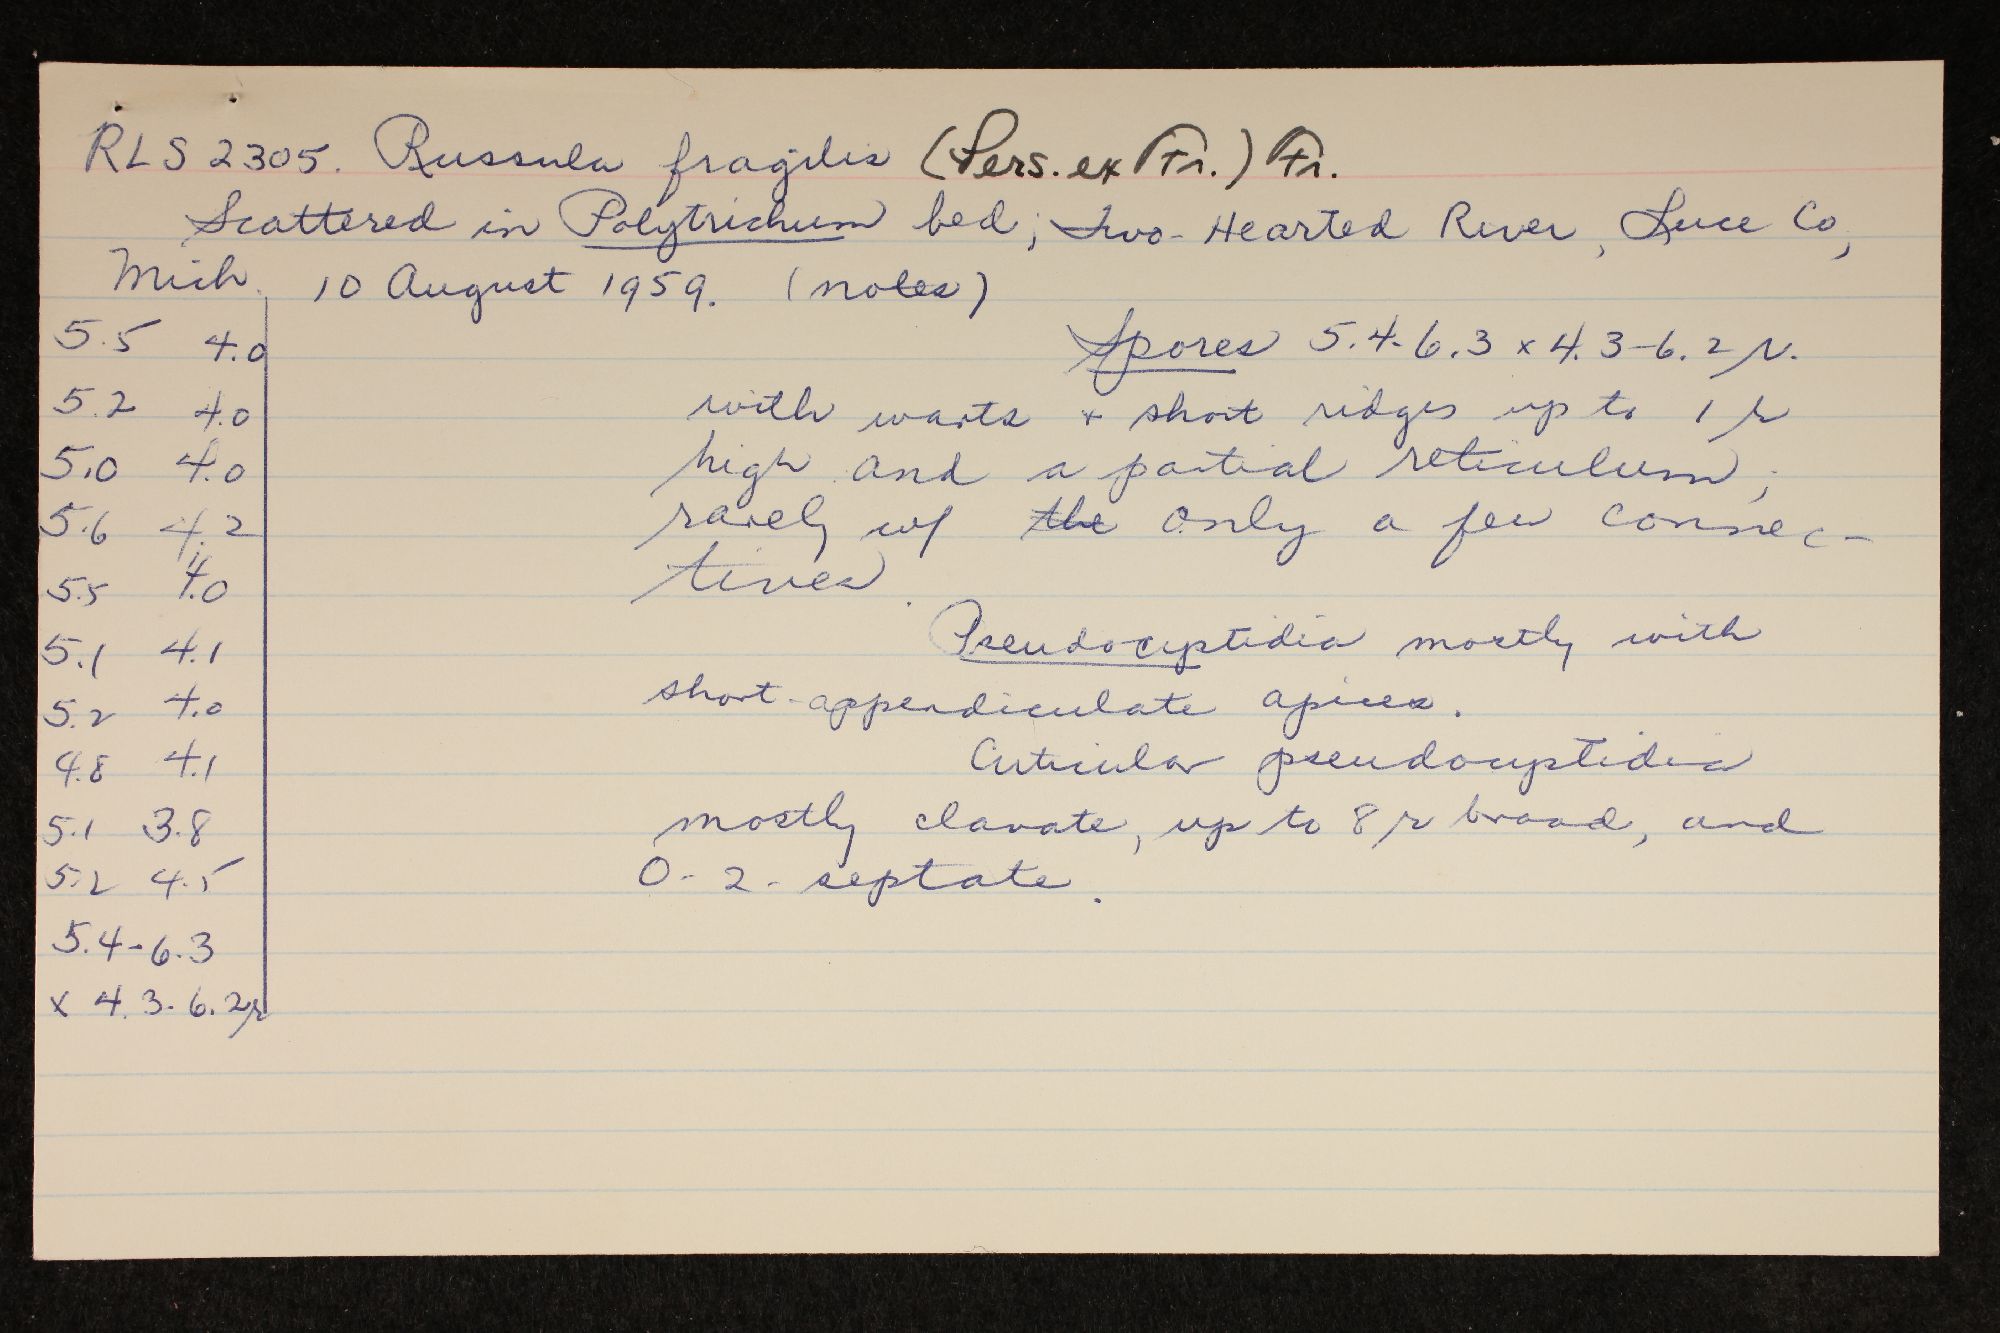 RLS 2305. Russula fragilis (Pers. ex Fr.) Fr.
Scattered in Polytrichum bed; Two-Hearted River, Luce Co,
Mich. 10 August 1959. (notes)
5.5 4.0
Spores 5.4-6.3 x 4.3-6.2 μ.
5.2 4.0
with warts + short ridges up to 1 μ
5.0 4.0
high and a partial reticulum;
5.6 4.2
rarely w/ the only a few connec-
5.5 4.0
tives.
5.1 4.1
Pseudocystidia mostly with
5.2 4.0
short-appendiculate apices.
4.8 4.1
Cuticular pseudocystidia
5.1 3.8
mostly clavate, up to 8 μ broad, and
5.2 4.5
0-2-septate.
5.4-6.3
x 4.3-6.2 μ